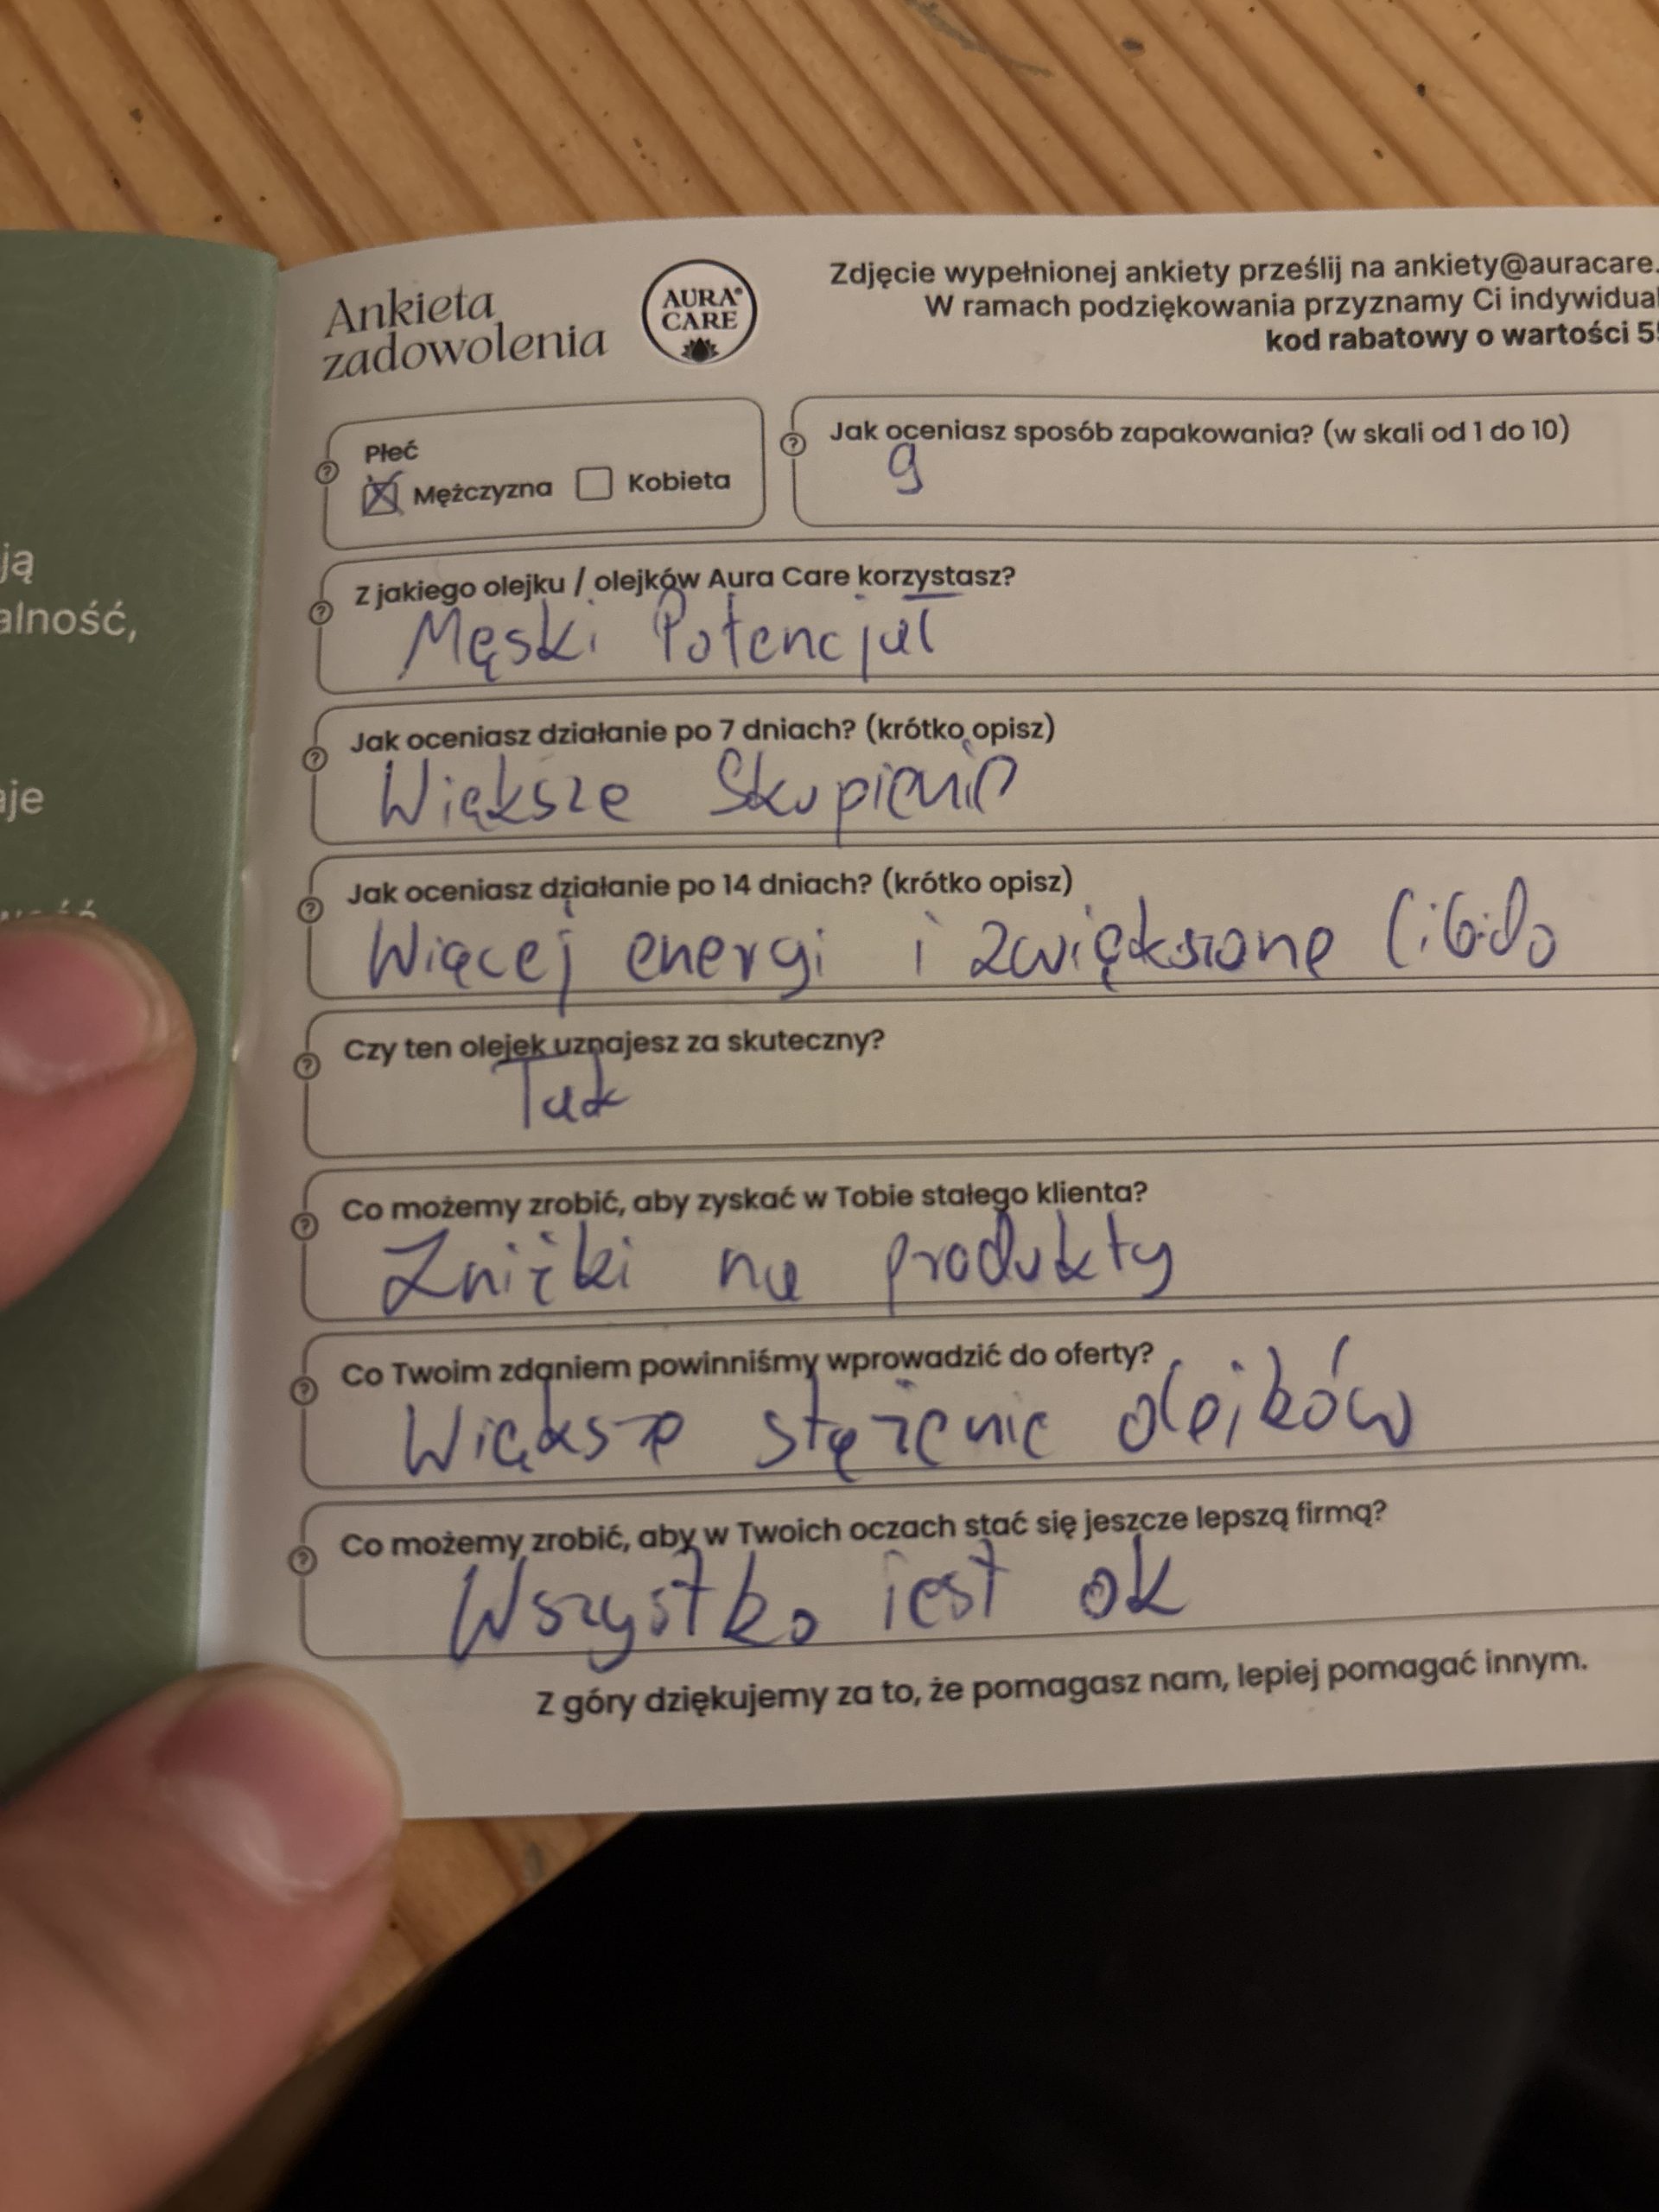 ją
alność,
je
Ankieta
zadowolenia
AURA®
CARE
Zdjęcie wypełnionej ankiety prześlij na ankiety@auracare.
W ramach podziękowania przyznamy Ci indywidual
kod rabatowy o wartości 5
Płeć
Mężczyzna Kobieta
Jak oceniasz sposób zapakowania? (w skali od 1 do 10)
9
Z jakiego olejku / olejków Aura Care korzystasz?
Męski Potencjał
Jak oceniasz działanie po 7 dniach? (krótko opisz)
Większe Skupienie
Jak oceniasz działanie po 14 dniach? (krótko opisz)
Więcej energi i zwiększone libido
Czy ten olejek uznajesz za skuteczny?
Tak
Co możemy zrobić, aby zyskać w Tobie stałego klienta?
Zniżki na produkty
Co Twoim zdaniem powinniśmy wprowadzić do oferty?
Większe stężenie olejków
Co możemy zrobić, aby w Twoich oczach stać się jeszcze lepszą firmą?
Wszystko jest ok
Z góry dziękujemy za to, że pomagasz nam, lepiej pomagać innym.